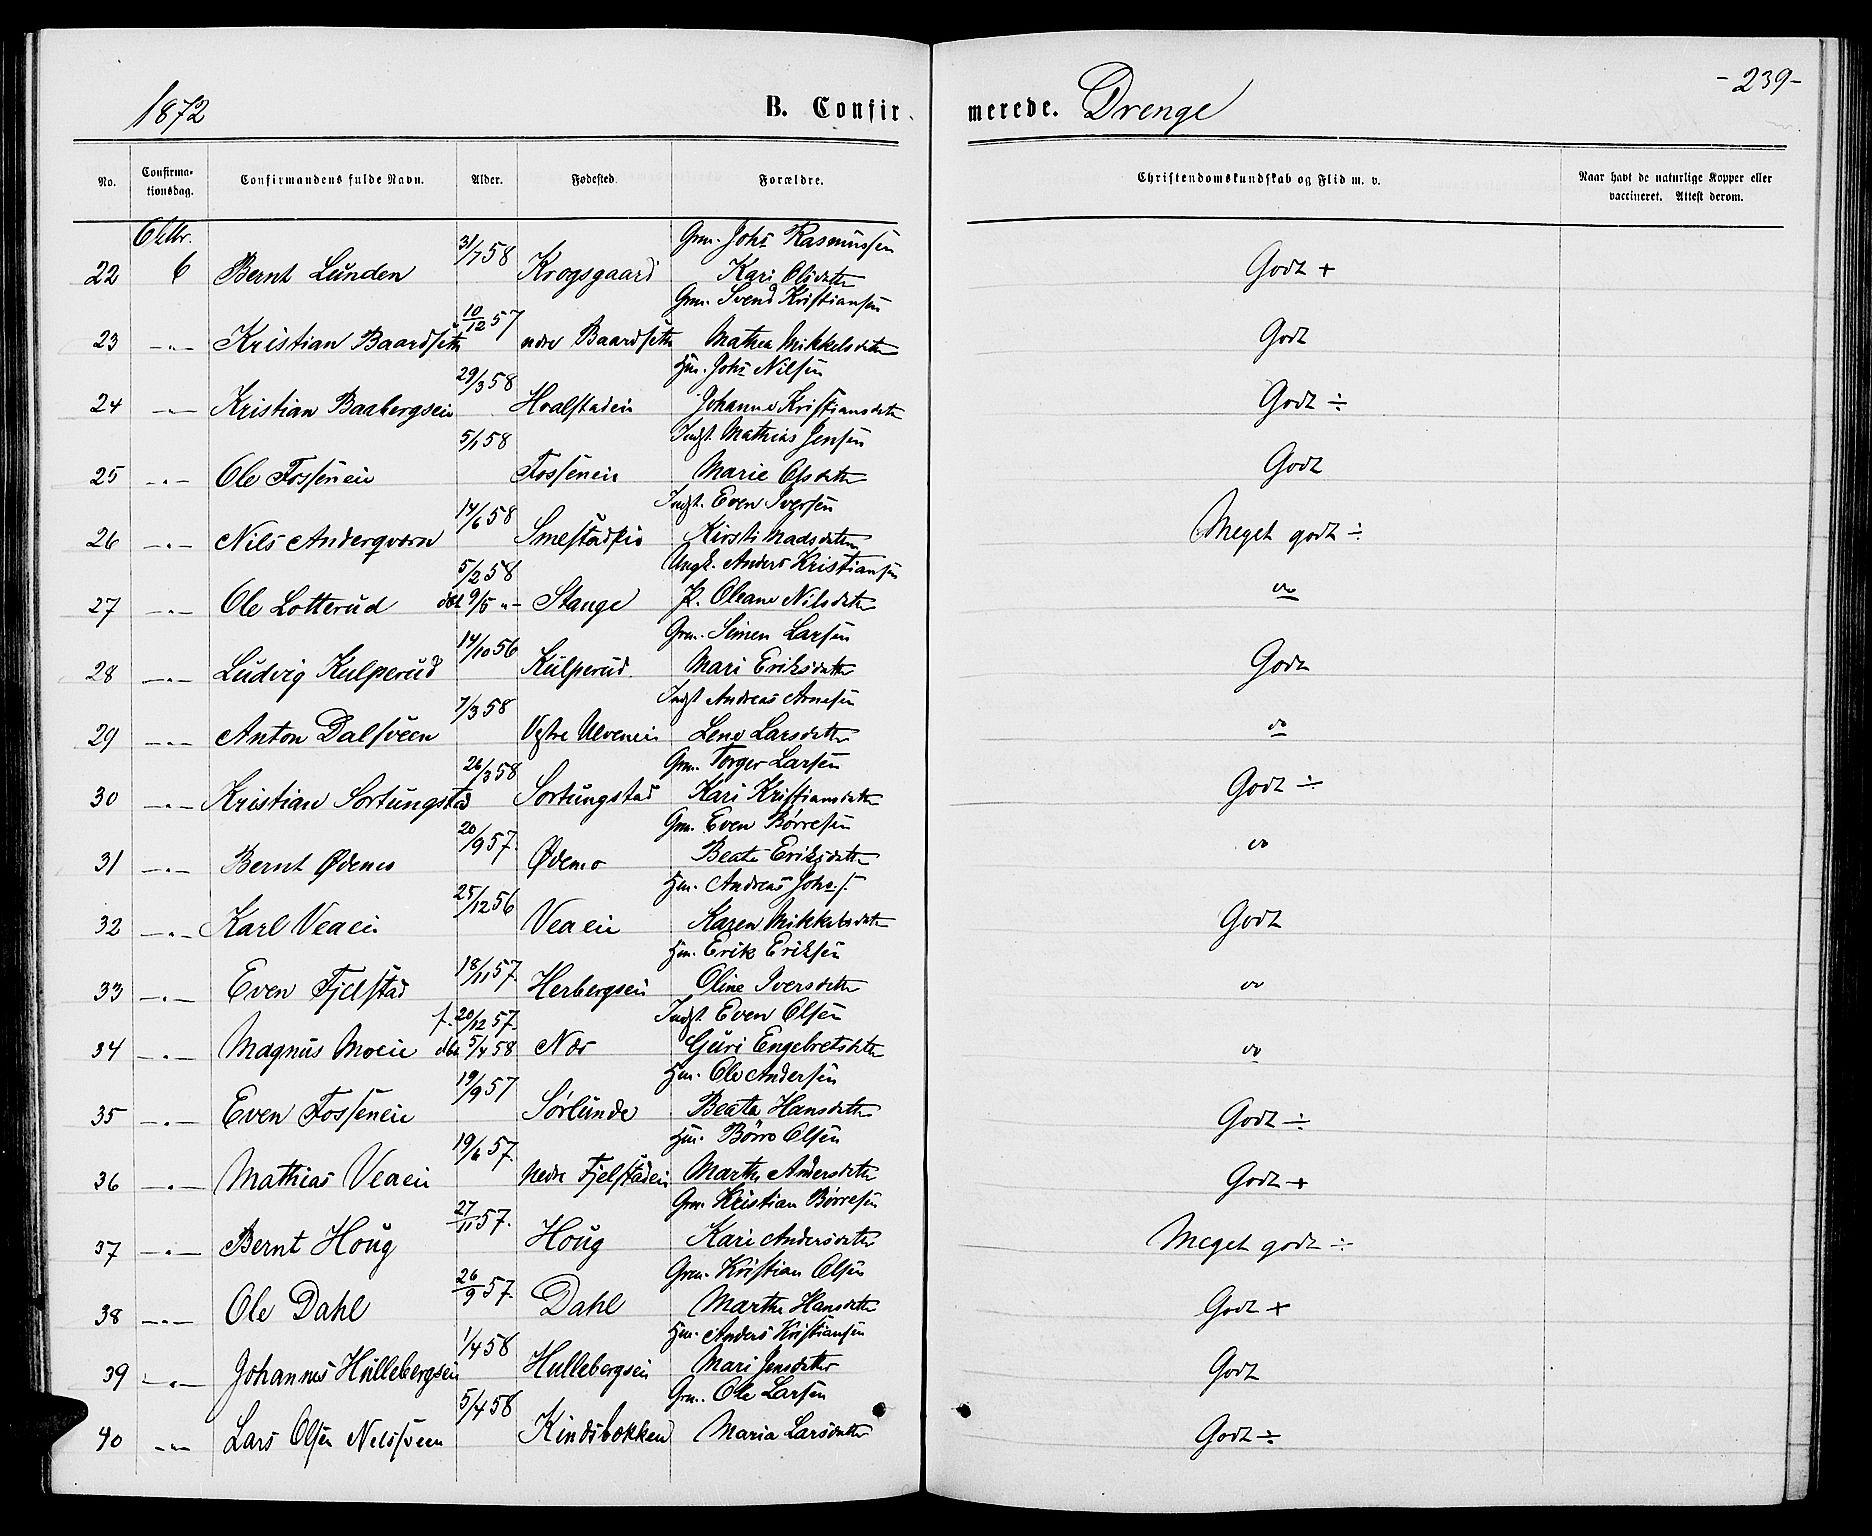 1872 B. Confirmerede. Drenge -239-
No. Confirmationsdag. Confirmandens fulde Navn. Alder. Fødested. Forældre. Christendomskundskab og Flid m. v. Naar havt de naturlige Kopper eller vaccineret. Attest derom.
Oktbr. 31/7 58 Grm. Johs Rasmussen
22 6 Bernt Lunden Krogsgaard Kari Olsdatter Godt +
10/12 57 Grm. Svend Kristiansen
23 -"- Kristian Baardseth nedre Baardseth Mathea Mikkelsdatter Godt
29/3 58 Hm. Johs Nilsen
24 -"- Kristian Baabergseie Hoalstadeie Johanne Kristiansdatter Godt ÷
5/1 58 Indst. Mathias Jensen
25 -"- Ole Fosseneie Fosseneie Marie Olsdatter Godt
14/6 58 Indst. Even Iversen
26 -"- Nils Anderqværn Smestadeie Kirsti Madsdatter Meget godt ÷
5/2 58 Ungk. Anders Kristiansen
27 -"- Ole Lotterud døbt 9/5 "- Stange P. Oleane Nilsdatter do
14/10 56 Grm. Simen Larsen
28 -"- Ludvig Kulperud Kulperud Mari Eriksdatter Godt
7/3 58 Indst Andreas Arnesen
29 -"- Anton Dalsveen Vestre Ulveneie Lene Larsdatter do
26/3 58 Grm. Torger Larsen
30 -"- Kristian Sortungstad Sortungstad Kari Kristiansdatter Godt ÷
20/9 57. Grm. Even Børresen
31 -"- Bernt Ødemo Ødemo Beate Eriksdatter do
25/12 56 Hm. Andreas Johs. s.
32 -"- Karl Veaeie Veaeie Karen Mikkelsdatter Godt
18/11 57. Hm. Erik Eriksen
33 -"- Even Fjelstad Herbergseie Oline Iversdatter do
f. 20/12 57. Indst. Even Olsen
34 -"- Magnus Moeie dbt 5/4 58 Nær Guri Engebretsdatter do
19/9 57 Hm. Ole Andersen
35 -"- Even Fosseneie Sørlunde Beata Hansdatter Godt ÷
19/6 57. Hm. Børre Olsen
36 -"- Mathias Veaeie nedre Fjelstadeie Marthe Andersdatter Godt +
27/11 57. Grm. Kristian Børresen
37 -"- Bernt Houg Houg Kari Andersdatter Meget godt ÷
26/9 57. Grm. Kristian Olsen
38 -"- Ole Dahl Dahl Marthe Hansdatter Godt +
1/4 58 Hm. Anders Kristiansen
39 -"- Johannes Hullebergseie Hullebergseie Mari Jensdatter Godt
5/4 58 Grm. Ole Larsen
40 -"- Lars Olsen Nilssveen Kindsbækken Maria Larsdatter Godt ÷